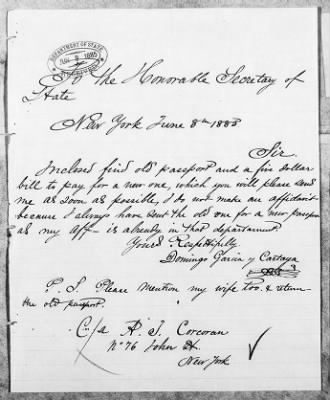 DEPARTMENT OF STATE
JUN 9 1885
To the Honorable Secretary of
State
New York June 8th 1885
Sir
Inclosed find old passport and a five dollar
bill to pay for a new one, which you will please send
me as soon as possible, I do not make an affidavit
because I always have sent the old one for a new passport
as my Aff- is already in that departament.
Yours Respectfully
Domingo Garcia y
P. S. Please mention my wife too. & return
the old passport.
C/a R. J. Corcoran
No 76 John St.
New York